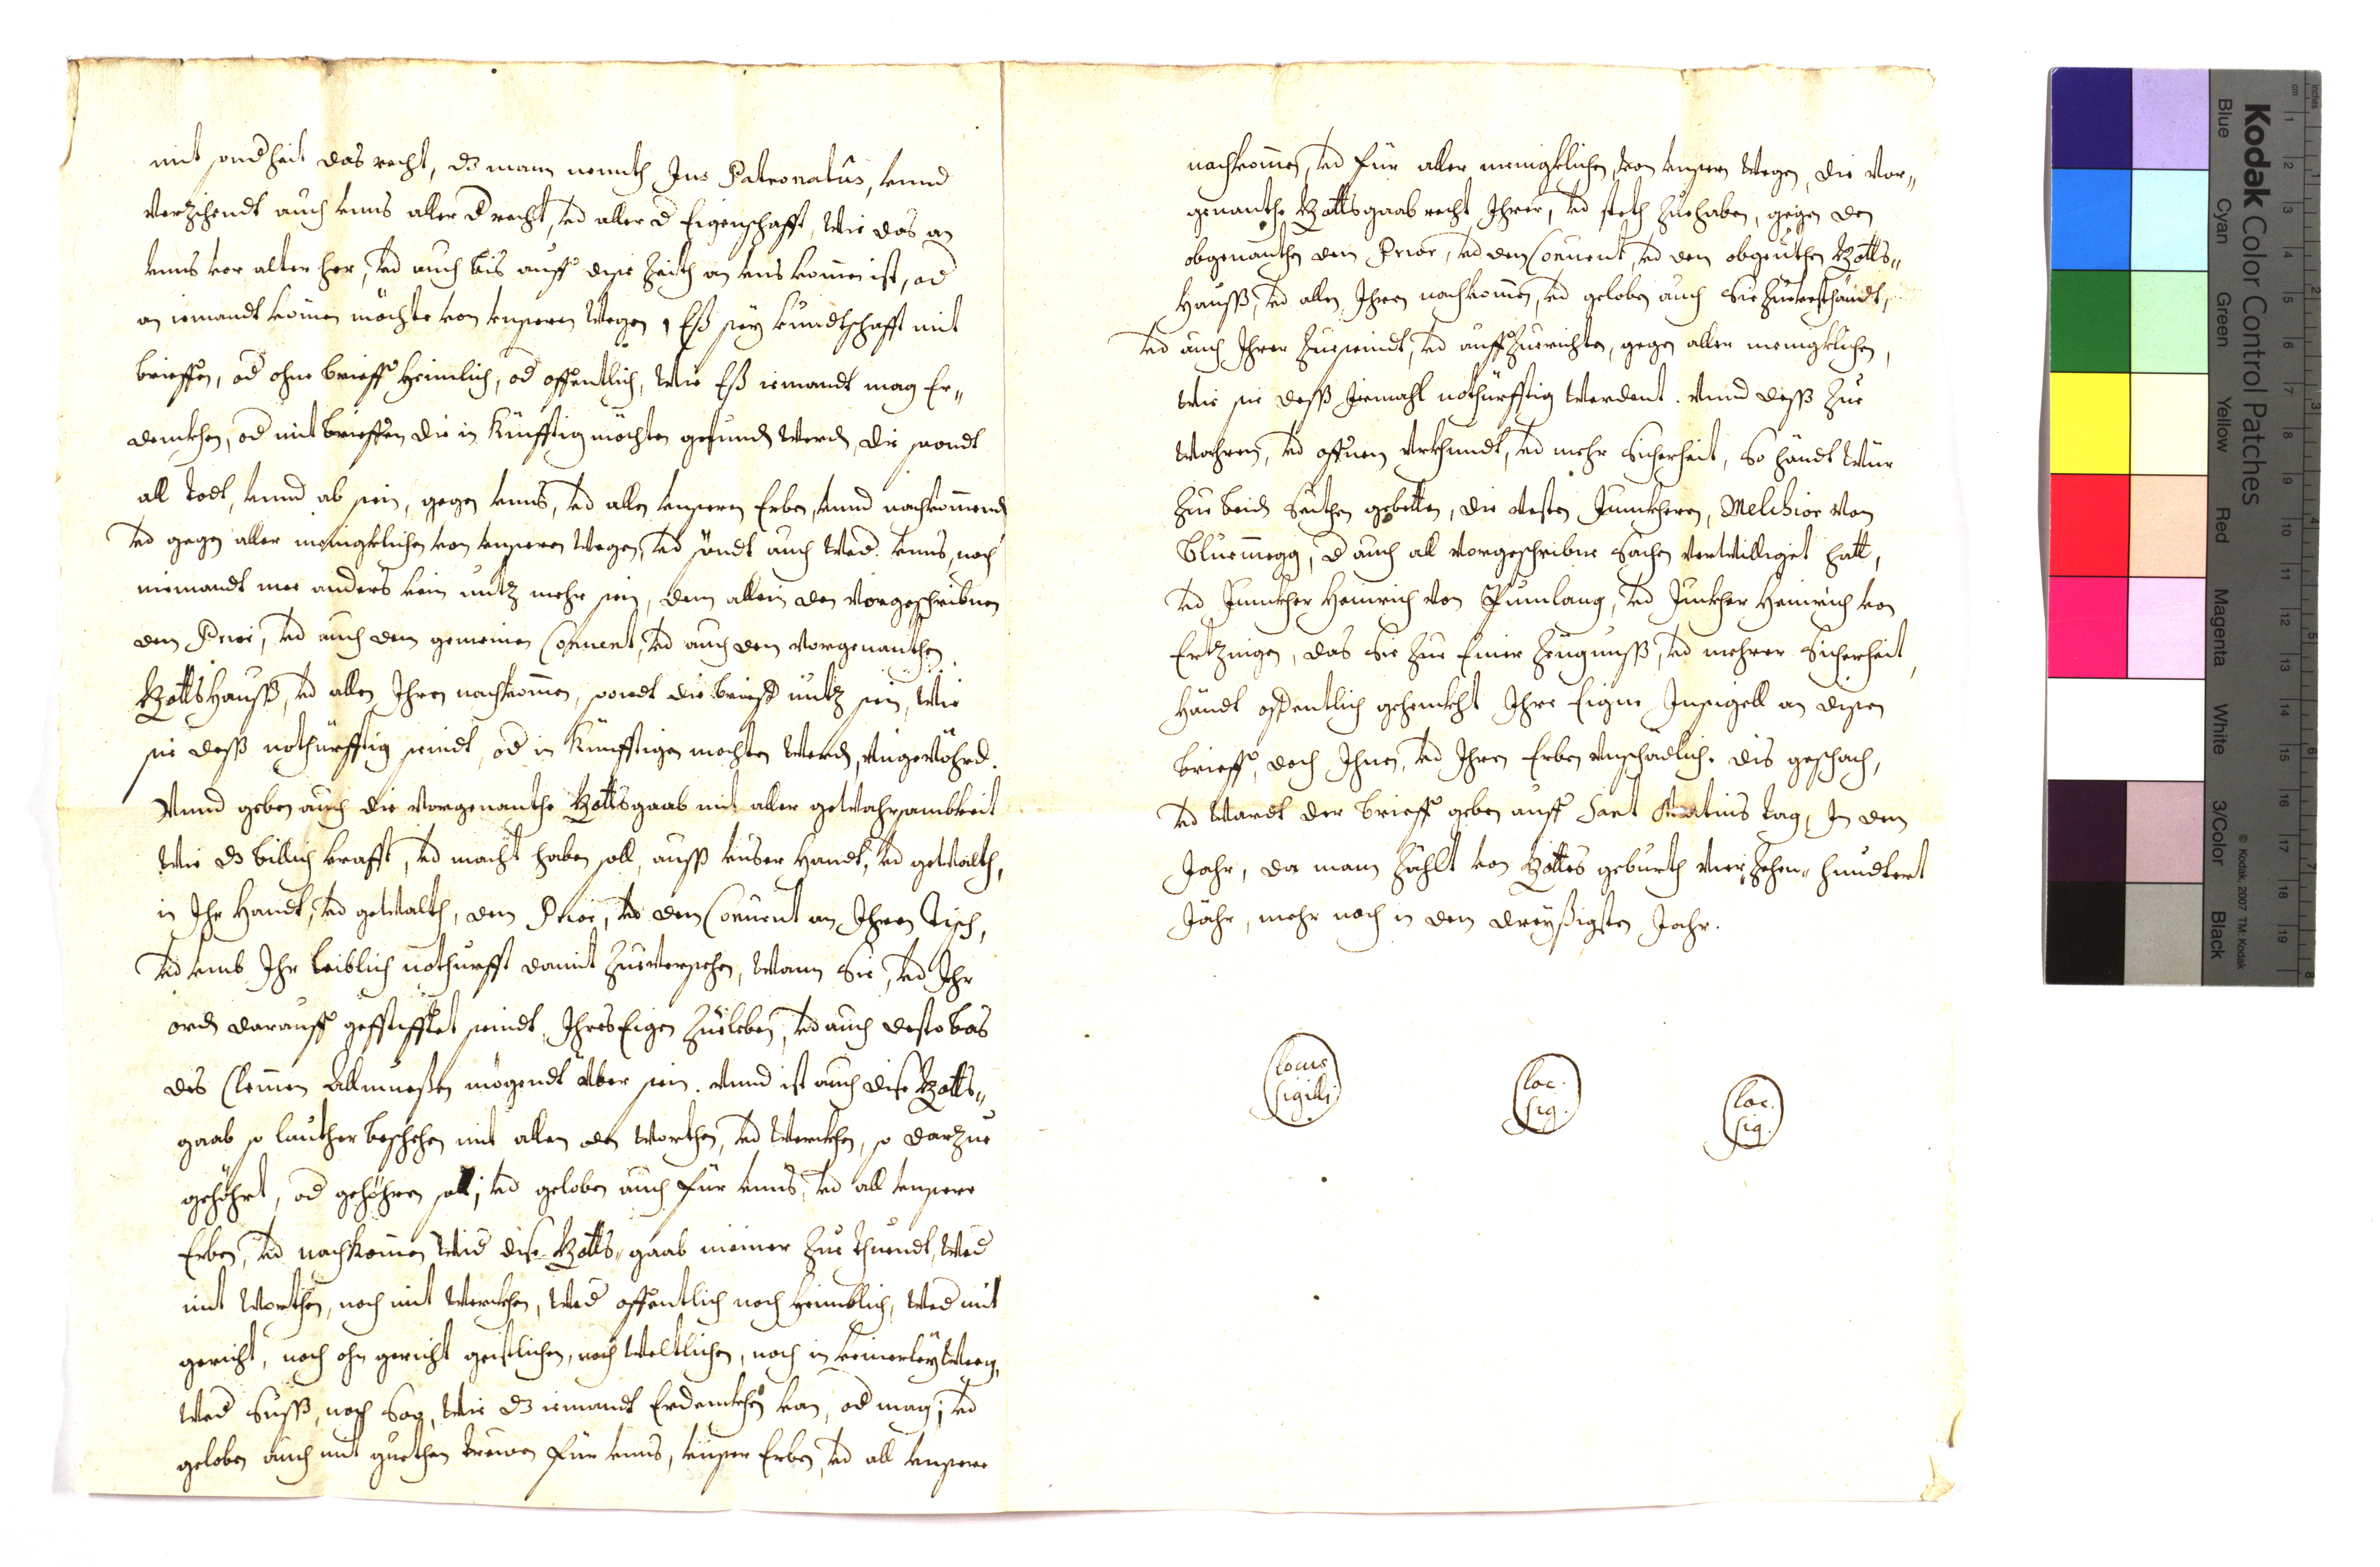 mit sondheit das recht, dz mann nennth Jus Patronatus, vnnd
verzihendt auch vnns aller d recht, vd aller d Eigenschafft, wie das an
vnns vor alter her, vd auch bis auff dise Zeith an vns kom̄en ist, od
an iemandt kom̄en möchte von vnseren wegen, Eß sey kundtschafft mit
brieffen, od ohne brieff heimlich, od offentlich, wie Eß iemandt mag Er„
denckhen, od mit brieffen die in künfftig möchten gefunden werden, die sondt
all Todt, vnnd ab sein, gegen vnns, vd allen vnseren Erben, vnnd nachkom̄enden
vd gegen aller meniglichen von vnseren wegen, vd söndt auch wed. vnns, noch
niemandt mer anders kein nutz mehr sein, dem allein den vorgeschribnen
dem Prior, vd auch dem gemeinen Conuent, vd auch dem vorgenanthen
Gottshauß, vd allen Ihren nachkom̄en, sondt die brieff nutz sein, wie
sie deß nothürfftig seindt, od in künfftigen mochten werden, vngevöhrd.
Vnnd geben auch die vorgenanthe Gottsgaab mit aller gewahrsambkeit
wie dz billich krafft, vd macht haben soll, auß vnser handt, vd gewalth,
in Ihr handt, vd gewalth, dem Prior, vd dem Conuent an Ihren Tisch,
vd vmb Ihr leiblich nothurfft damit zueversehen, wann sie, vd Ihr
orden darauff gestifftet seindt, Ihres Eigen zueleben, vd auch desto bas
des Allmueßen mögendt über sein. Vnnd ist auch dise Gotts„
gaab so lauther beschehen mit allen den worthen, vd werckhen, so darzue
gehöhrt, od gehöhren soll; vd geloben auch für vnns, vd all vnsere
Erben, vd nachkom̄en wid dise Gotts„gaab niemer zue thuendt, wed
mit worthen, noch mit werckhen, wed offentlich noch heimblich, wed mit
gericht, noch ohn gericht geistlichen, noch weltlichen, noch in keinerley weeg,
wed suß, noch so, wie dz iemandt Erdenckhen kan, od mag; vd
geloben auch mit guethen trewen für vnns, vnser Erben, vd all vnsere
nachkom̄en, vd für aller menigklichen, von vnsern wegen, die vor„
genanthe Gottsgaab recht Ihrer, vd steth zuehaben, gegen den
obgenanthen dem Prior, vd dem Conuent, vd dem obgenthen Gotts„
Hauß, vd allen Ihren nachkom̄en, vd geloben auch sie
vd auch Ihrer zueseindt, vd auffzuerichten, gegen aller menigklichen,
wie sie deß Jemahl nothürfftig werdent. Vnnd deß zue
wahrem, vd offnem vrkhundt, vd mehr sicherheit, so handt wür
zue beiden seithen gebetten, die vesten Junckheren, Melchior von
Bluemegg, d auch all vorgeschribne sachen verwilliget hatt,
vd Junckher Heinrich von Rumlang, vd Junckher Heinrich von
Ertzingen, das sie zue Einer Zeugnuß, vd mehrer sicherheit,
handt offentlich gehenckht Ihre Eigne Insigell an disen
brieff, doch Ihnen, vd Ihren Erben vnschädlich. dis geschach,
vd wardt der brieff geben auff Sant tag, In dem
Jahr, da mann zählt von Gottes geburth vier„zehen„hundtert
Jahr, mehr noch in dem dreyßigsten Jahr.
locus
sigilli
loc.
sig.
loc.
sig.
Kodak Color Control Patches
Blue Cyan Green Yellow Red Magenta White 3/Color Black
© Kodak, 2007 TM: Kodak